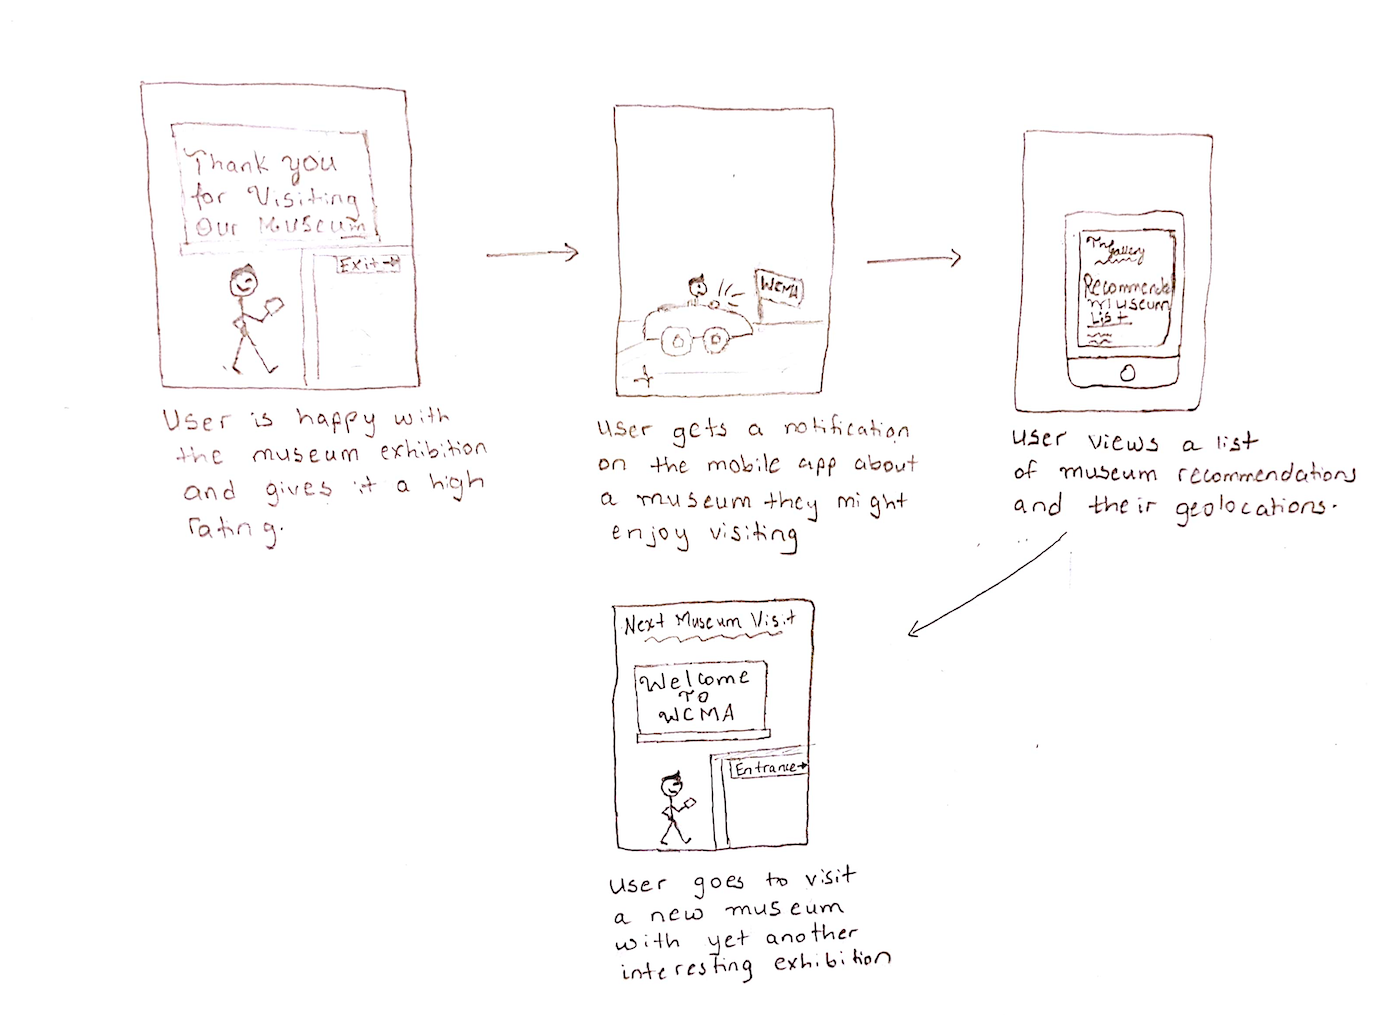 Thank you
for Visiting
Our Museum
Exit
User is happy with
the museum exhibition
and gives it a high
rating.
WCMA
User gets a notification
on the mobile app about
a museum they might
enjoy visiting
Gallery
Recommended
Museum
List
User views a list
of museum recommendations
and their geolocations.
Next Museum Visit
Welcome
TO
WCMA
Entrance
User goes to visit
a new museum
with yet another
interesting exhibition